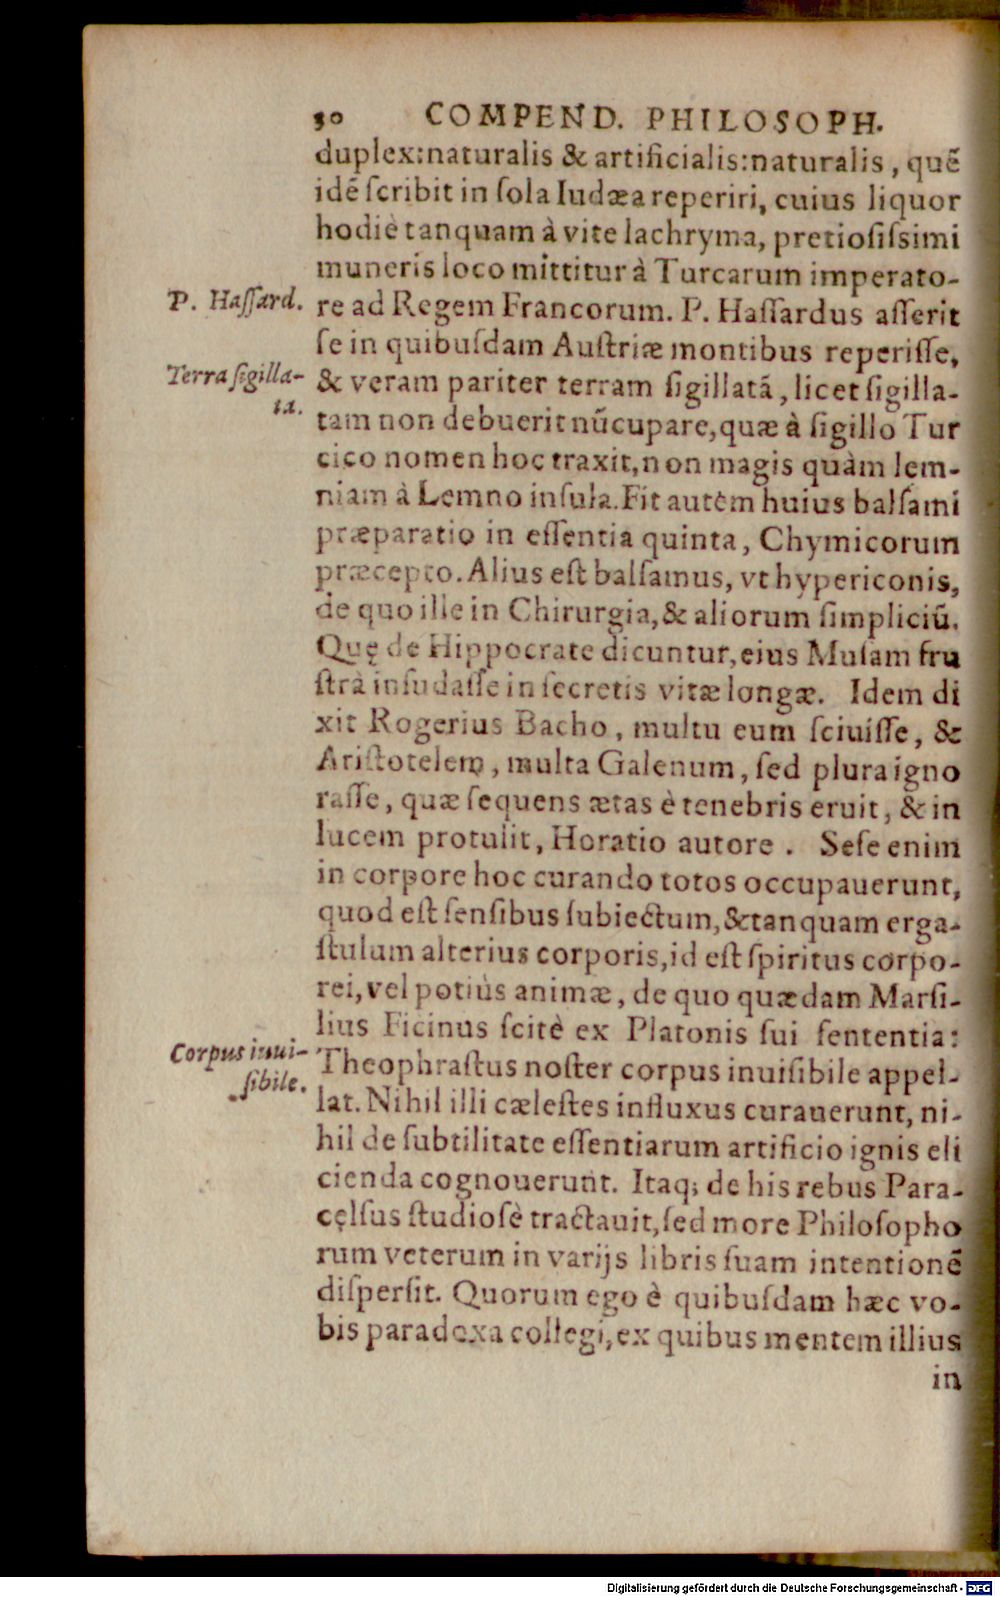 50 COMPEND. PHILOSOPH.
duplex: naturalis & artificialis: naturalis, quẽ
idẽ ſcribit in ſola Iudæa reperiri, cuius liquor
hodiè tanquam à vite lachryma, pretioſiſsimi
muneris loco mittitur à Turcarum imperato-
P. Haſſard.
re ad Regem Francorum. P. Haſſardus aſſerit
ſe in quibuſdam Auſtriæ montibus reperiſſe,
Terra ſigilla-
ta.
& veram pariter terram ſigillatã, licet ſigilla-
tam non debuerit nũcupare, quæ à ſigillo Tur
cico nomen hoc traxit, non magis quàm lem-
niam à Lemno inſula. Fit autèm huius balſami
præparatio in eſſentia quinta, Chymicorum
præcepto. Alius eſt balſamus, vt hypericonis,
de quo ille in Chirurgia, & aliorum ſimpliciũ.
Quę de Hippocrate dicuntur, eius Muſam fru
ſtrà inſudaſſe in ſecretis vitæ longæ. Idem di
xit Rogerius Bacho, multu eum ſciuiſſe, &
Ariſtotelem, multa Galenum, ſed plura igno
raſſe, quæ ſequens ætas è tenebris eruit, & in
lucem protulit, Horatio autore. Seſe enim
in corpore hoc curando totos occupauerunt,
quod eſt ſenſibus ſubiectum, & tanquam erga-
ſtulum alterius corporis, id eſt ſpiritus corpo-
rei, vel potiùs animæ, de quo quædam Marſi-
lius Ficinus ſcitè ex Platonis ſui ſententia:
Corpus inui-
ſibile.
Theophraſtus noſter corpus inuiſibile appel-
lat. Nihil illi cæleſtes influxus curauerunt, ni-
hil de ſubtilitate eſſentiarum artificio ignis eli
cienda cognouerunt. Itaq; de his rebus Para-
cęlſus ſtudioſè tractauit, ſed more Philoſopho
rum veterum in varijs libris ſuam intentionẽ
diſperſit. Quorum ego è quibuſdam hæc vo-
bis paradoxa collegi, ex quibus mentem illius
in
Digitalisierung gefördert durch die Deutsche Forschungsgemeinschaft - DFG